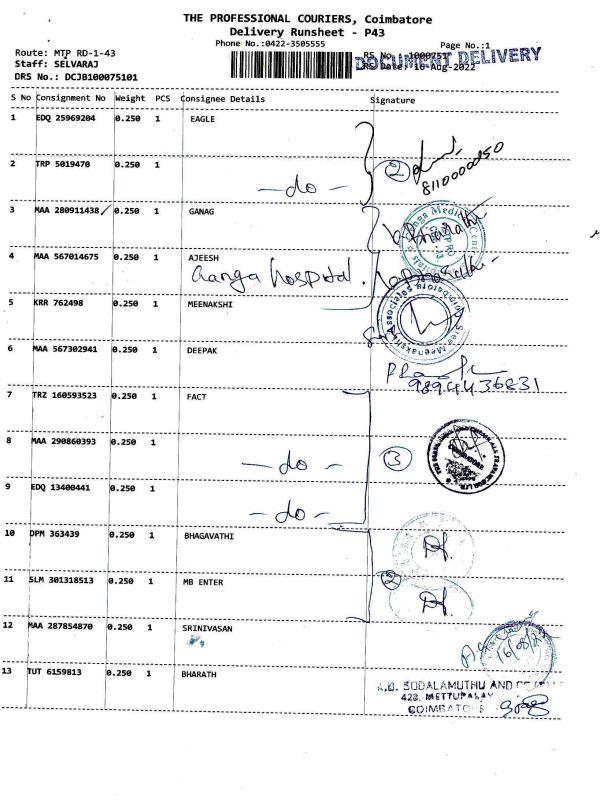 THE PROFESSIONAL COURIERS, Coimbatore
Delivery Runsheet - P43
Phone No.:0422-3505555
Page No.:1
Route: MTP RD-1-43
RS No. 1000751
DOCUMENT DELIVERY
Staff: SELVARAJ
DRS Date: 16-Aug-2022
DRS No.: DCJB100075101
S No Consignment No Weight PCS Consignee Details Signature
1 EDQ 25969204 0.250 1 EAGLE
2 TRP 5019470 0.250 1
- do -
2
8110000050
3 MAA 280911438 0.250 1 GANAG
4 MAA 567014675 0.250 1 AJEESH
Ganga hospital.
5 KRR 762498 0.250 1 MEENAKSHI
6 MAA 567302941 0.250 1 DEEPAK
9894436831
7 TRZ 160593523 0.250 1 FACT
8 MAA 290860393 0.250 1
- do -
3
9 EDQ 13400441 0.250 1
- do -
10 DPM 363439 0.250 1 BHAGAVATHI
11 SLM 301318513 0.250 1 MB ENTER
2
12 MAA 287854870 0.250 1 SRINIVASAN
16/08/22
13 TUT 6159813 0.250 1 BHARATH
SODALAMUTHU AND
428, METTUPALAY
COIMBATORE